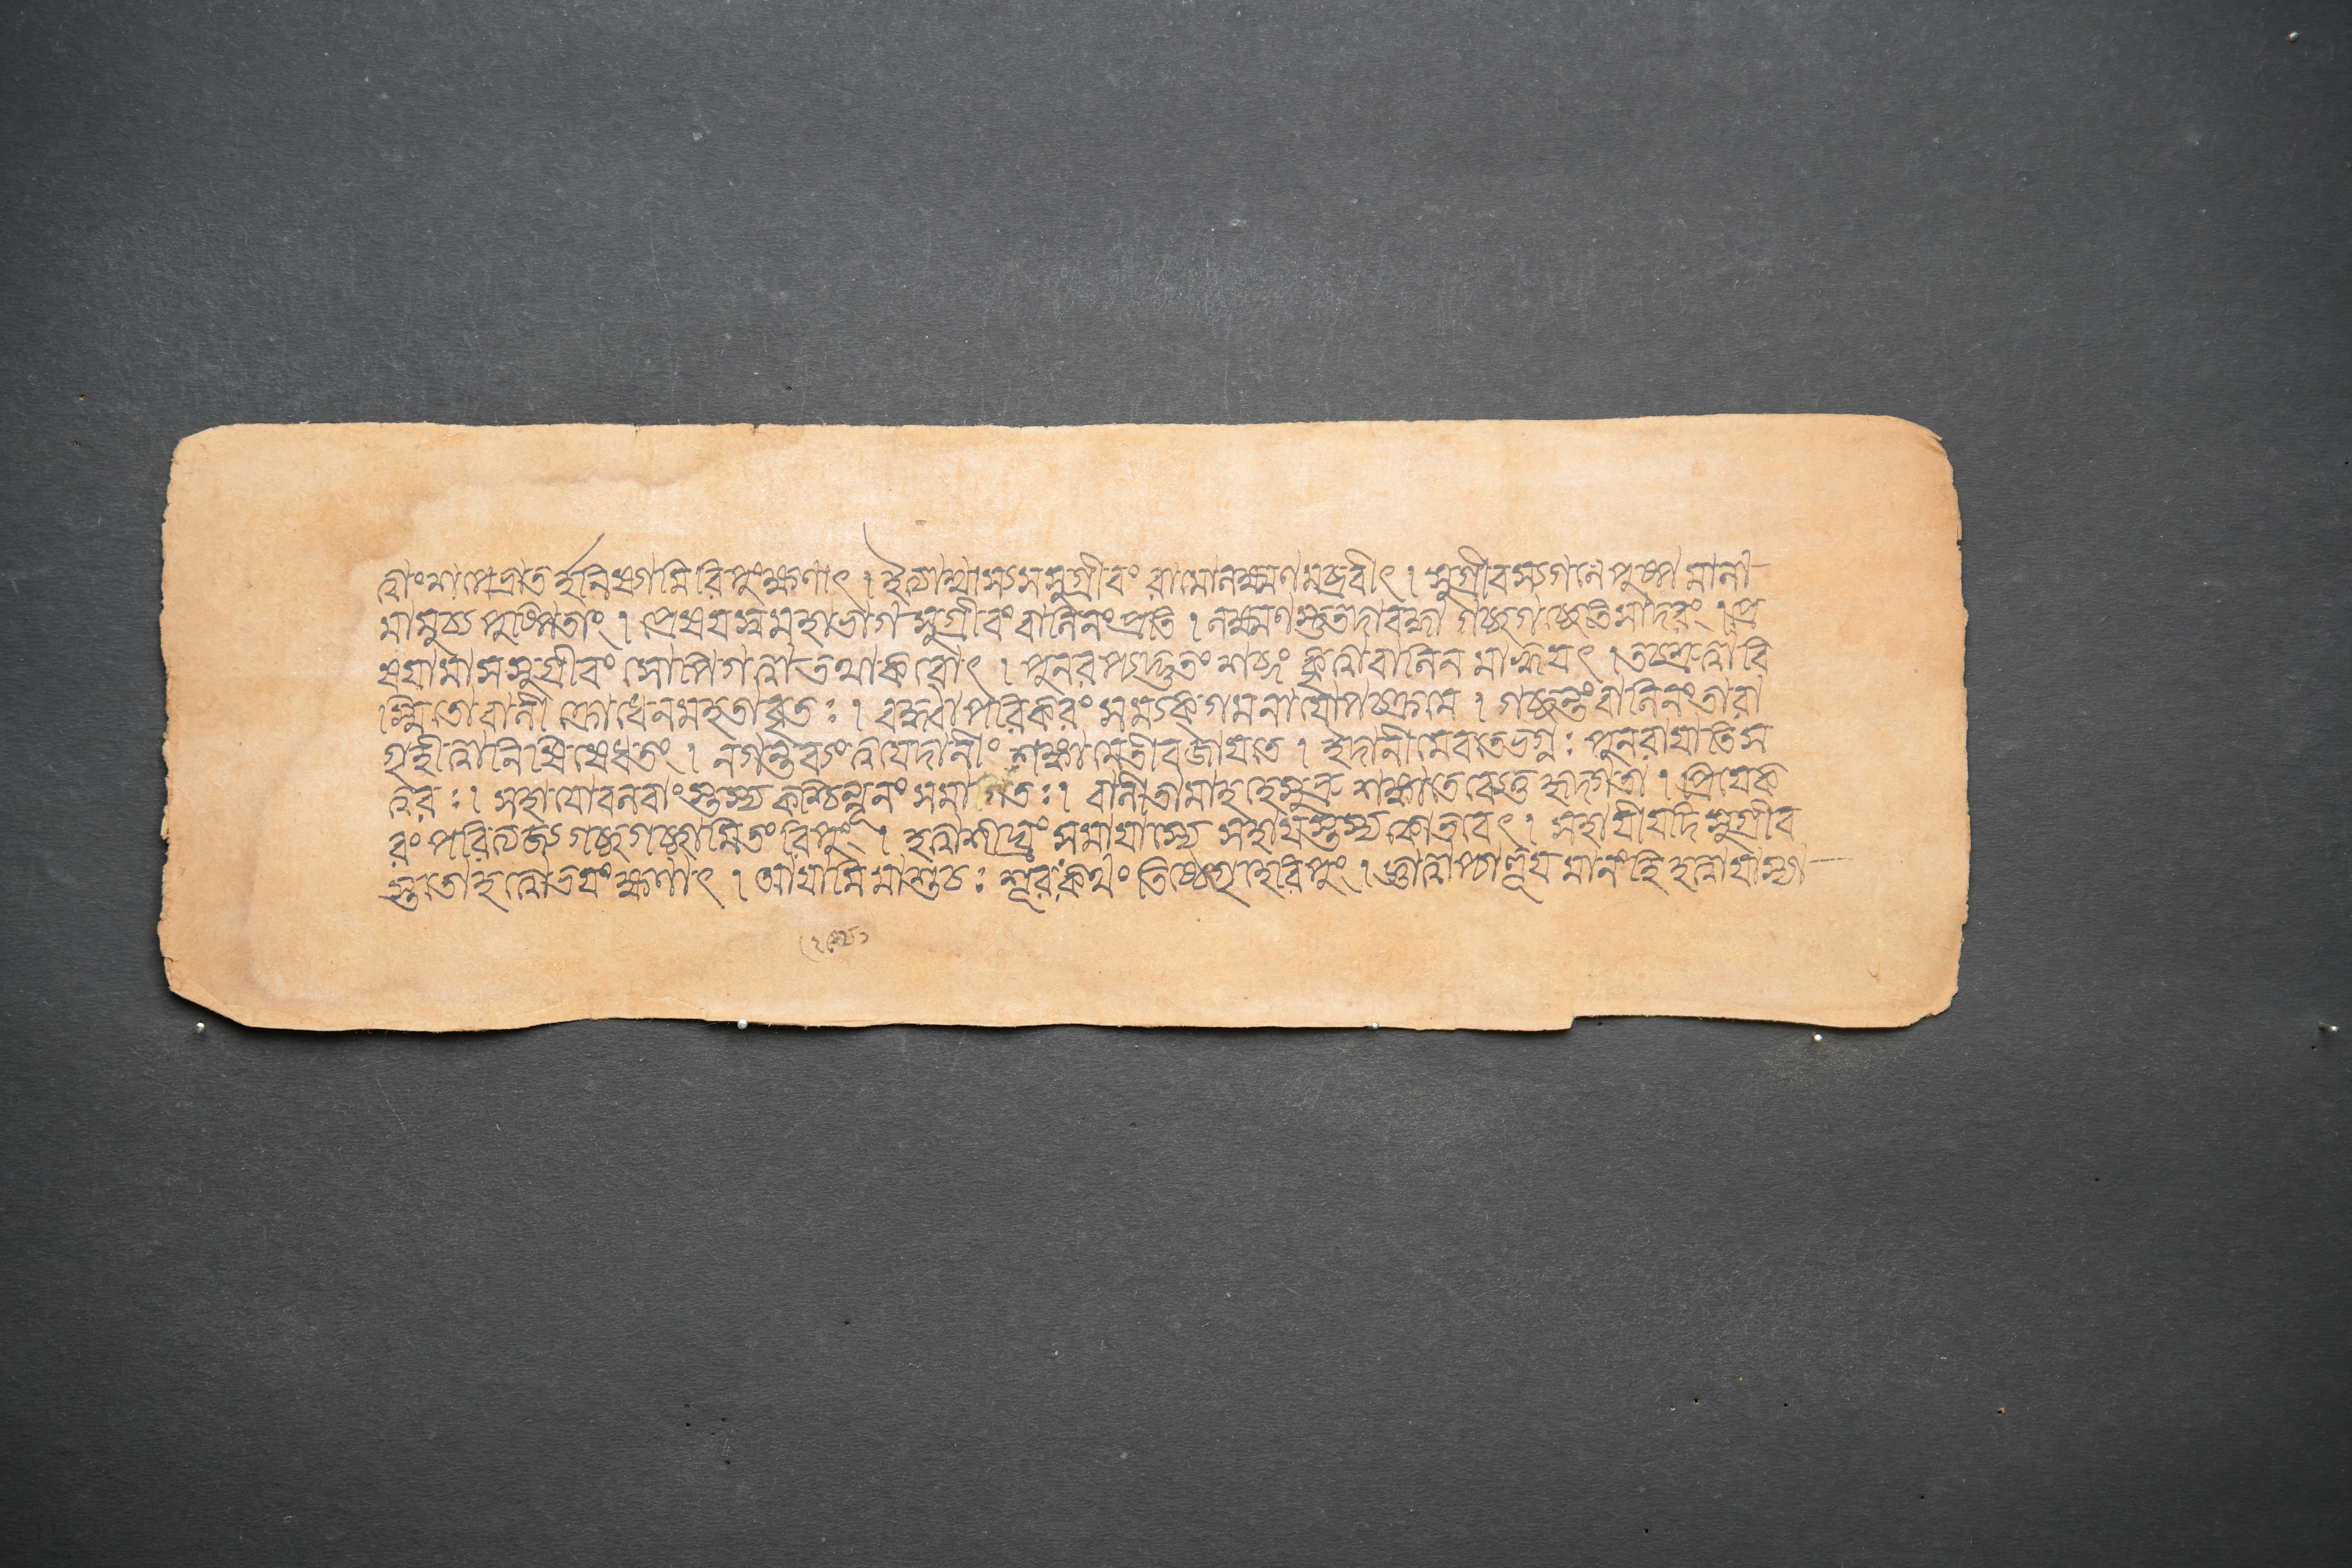 ত্বাং শপে ভ্রাতর্হনিষ্যামি রিপুং ক্ষণাৎ । ইত্যাশ্বাস্য স সুগ্রীবং রামো লক্ষ্মণমব্রবীৎ । সুগ্রীবস্য গলে পুষ্পমালা
মামুচ্য পুষ্পিতাং । প্রেষযস্ব মহাভাগ সুগ্রীবং বালিনং প্রতি । লক্ষ্মণস্তু তদা বদ্ধা গচ্ছ গচ্ছেতি সাদরং । প্রে
ষযামাস সুগ্রীবং সোপি গত্বা তথাকরোৎ । পুনরপ্যদ্ভুতং শব্দং কৃত্বা বালিনমাহ্বযৎ । তচ্ছ্রুত্বা বি
স্মিতো বালী ক্রোধেন মহতাবৃতঃ । বদ্ধা পরিকরং সম্যক্ গমনাযোপচক্রমে । গচ্ছন্তং বালিনং তারা
গৃহীত্বা নিষিষেধ তং । ন গন্তব্যং ত্বযেদানীং শঙ্কা মেতীব জাযতে । ইদানীমেব তে ভগ্নঃ পুনরাযাতি স
ত্বরঃ । সহাযো বলবাংস্তস্য কশ্চিন্নূনং সমাগতঃ । বালী তামাহ হে সুভ্রু শঙ্কা তে ব্যেতু হৃদ্গতা । প্রিযে ক
রং পরিত্যজ্য গচ্ছ গচ্ছামি তং রিপুং । হত্বা শীঘ্রং সমাযাস্যে সহাযস্তস্য কো ভবেৎ । সহাযী যদি সুগ্রীব
স্ততো হত্বোভযং ক্ষণাৎ । আযামি মা শুচঃ শূরঃ কথং তিষ্ঠেদ্গৃহে রিপুং । জ্ঞাত্বাপ্যাহূযমানং হি হত্বাযাস্যা